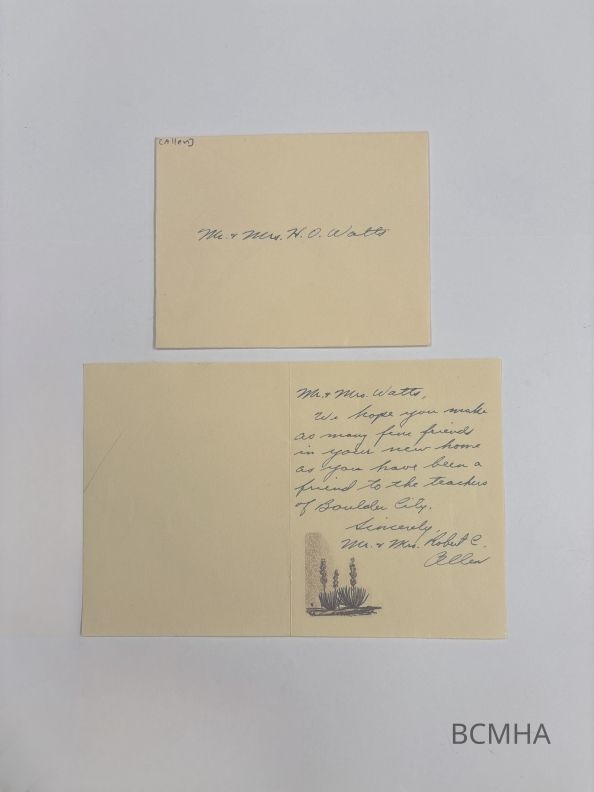 [Allen]
Mr. & Mrs. H. O. Watts
Mr. & Mrs. Watts,
We hope you make
as many fine friends
in your new home
as you have been a
friend to the teachers
of Boulder City.
Sincerely,
Mr. & Mrs. Robert C.
Allen
BCMHA